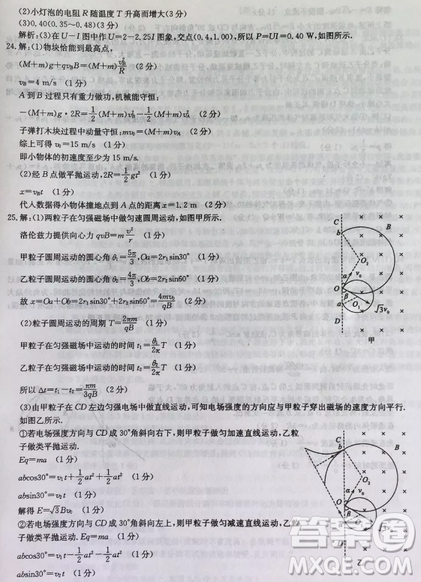 (2)小灯泡的电阻R随温度T升高而增大(3分)
(3)0.40(0.35~0.48)(3分)
解析:(3)在U-I图中作U=2-2.25I图象,交点(0.4,1.00),所以P=UI=0.40 W,如图所示.
24.解:(1)物块恰能到最高点,
(M+m)g+qv_BB=(M+m)v_B²/R (2分)
v_B=4 m/s (1分)
A到B过程只有重力做功,机械能守恒:
-(M+m)g·2R=1/2(M+m)v_B²-1/2(M+m)v_A² (2分)
子弹打木块过程中动量守恒:mv_0=(M+m)v_A (2分)
综上可得v_0=15 m/s (1分)
即小物体的初速度至少为15 m/s.
(2)经B点做平抛运动,2R=1/2gt² (1分)
x=v_Bt (1分)
代人数据得小物体撞地点到A点的距离x=1.2 m (1分)
25.解:(1)两粒子在匀强磁场中做匀速圆周运动,如图甲所示.
洛伦兹力提供向心力qvB=mv²/r (1分)
甲粒子圆周运动的圆心角θ_1=5π/3,Oa=2r_1sin30° (1分)
乙粒子圆周运动的圆心角θ_2=4π/3,Ob=2r_2sin60° (1分)
故x=Oa+Ob=2r_1sin30°+2r_2sin60°=4mv_0/qB (1分)
(2)粒子圆周运动的周期T=2πm/qB (1分)
甲粒子在匀强磁场中运动的时间t_1=θ_1/2π T (1分)
乙粒子在匀强磁场中运动的时间t_2=θ_2/2π T (1分)
所以Δt=t_1-t_2=πm/3qB (2分)
(3)由甲粒子在CD左边匀强电场中做直线运动,可知电场强度的方向应与甲粒子穿出磁场的速度方向平行.
如图乙所示.
①若电场强度的方向与CD成30°角斜向右下,则甲粒子做匀加速直线运动,乙粒
子做类平抛运动.
Eq=ma (1分)
abcos30°=v_1t+1/2at²+1/2at² (1分)
absin30°=v_2t (1分)
②若电场强度的方向与CD成30°角斜向左上,则甲粒子做匀减速直线运动,乙粒
子做类平抛运动.Eq=ma (1分)
abcos30°=v_1t-1/2at²-1/2at² (1分)
absin30°=v_2t (1分)
甲
答案圈